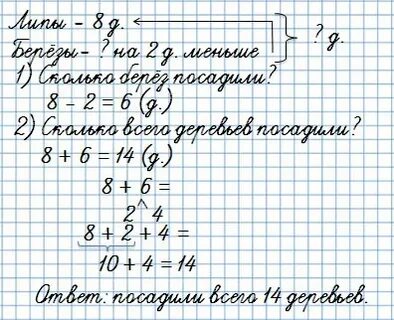 Липы – 8 д.
Берёзы – ? на 2 д. меньше
? д.
1) Сколько берёз посадили?
8 – 2 = 6 (д.)
2) Сколько всего деревьев посадили?
8 + 6 = 14 (д.)
8 + 6 =
2 4
8 + 2 + 4 =
10 + 4 = 14
Ответ: посадили всего 14 деревьев.